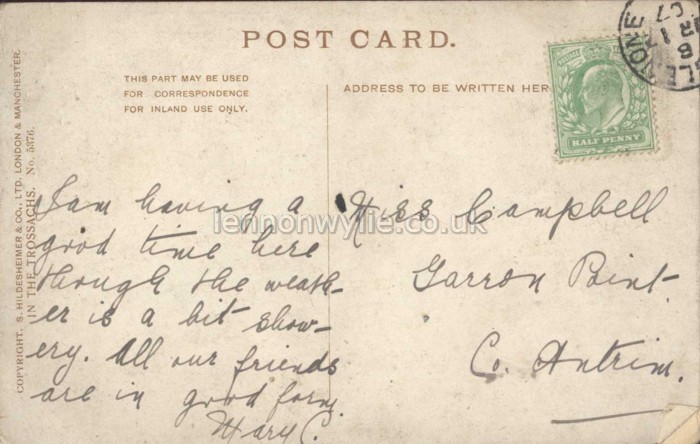 POST CARD.
THIS PART MAY BE USED
FOR CORRESPONDENCE
FOR INLAND USE ONLY.
ADDRESS TO BE WRITTEN HER
HALF PENNY
COPYRIGHT. S. HILDESHEIMER & CO., LTD. LONDON & MANCHESTER.
IN THE TROSSACHS. No. 5376.
I am having a
good time here
though the weath-
er is a bit show-
ery. All our friends
are in good form.
Mary C.
Miss Campbell
Garron Point.
Co. Antrim.
lennonwylie.co.uk